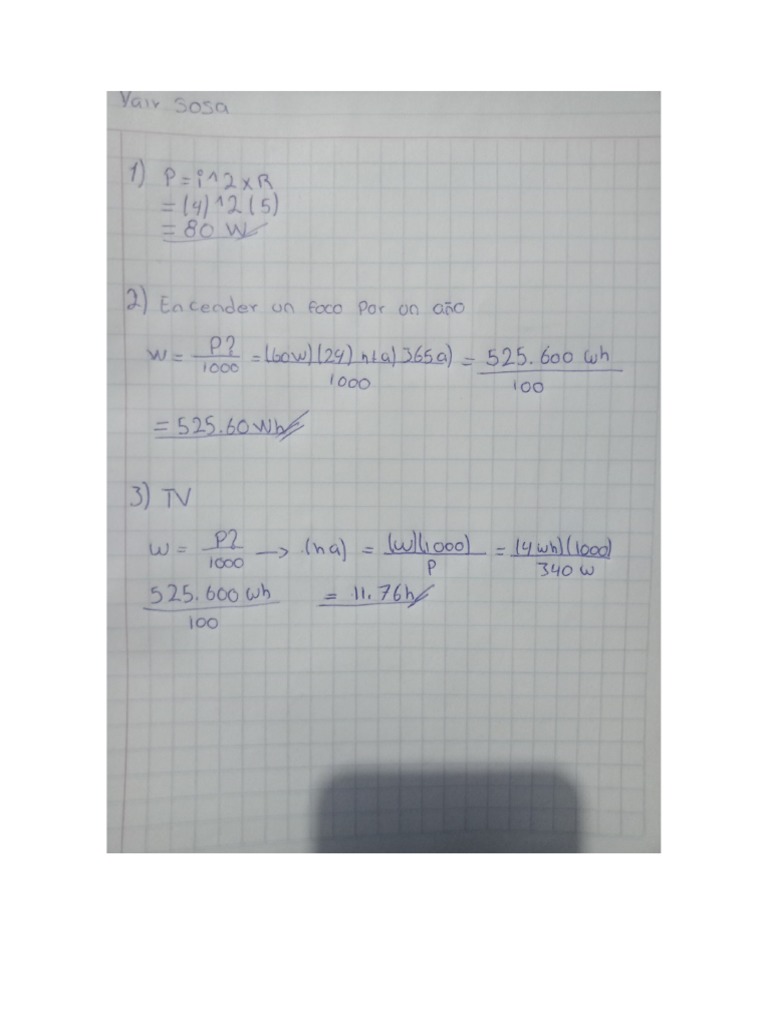 Yair Sosa
1) P = i^2 x R
= (4)^2 (5)
= 80 W
2) Encender un foco por un año
W = P? / 1000 = (60w) (24) h(a) 365a) / 1000 = 525.600 wh / 100
= 525.60 Wh
3) TV
W = P? / 1000 → (ha) = (W)(1000) / P = (4 wh) (1000) / 340 w
525.600 wh / 100 = 11.76h